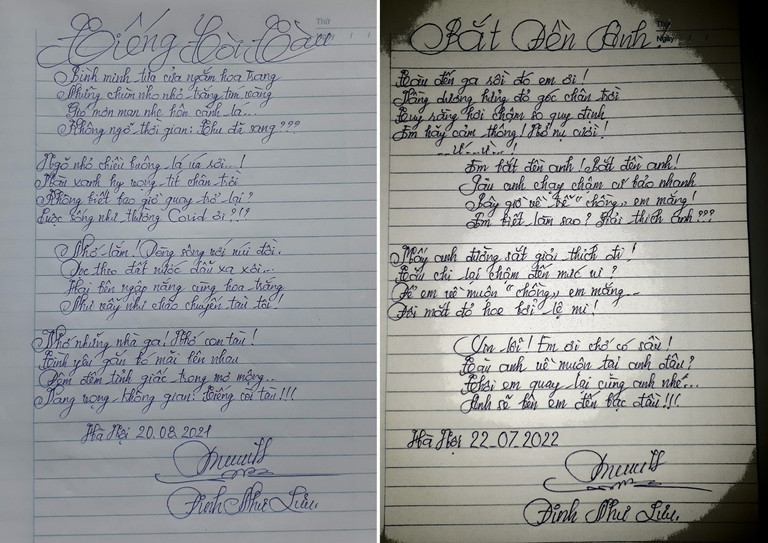 Tiếng Còi Tàu
Thứ
Bình minh tựa cửa ngắm hoa trang
Những chùm nho nhỏ trắng tim vàng
Gió mơn man nhẹ hôn cành lá...
Không ngờ thời gian: Thu đã sang???
Ngõ nhỏ chiều buông lá úa rồi...!
Màu xanh hy vọng tít chân trời
Không biết bao giờ quay trở lại?
Cuộc sống như thường Covid ơi?!?
Nhớ lắm! Dòng sông với núi đồi.
Dọc theo đất nước dẫu xa xôi...
Hai bên ngập nắng cùng hoa trắng
Như vẫy như chào chuyến tàu tôi!
Nhớ những nhà ga! Nhớ con tàu!
Tình yêu gắn bó mãi bên nhau
Đêm đêm tỉnh giấc trong mơ mộng...
Vang vọng không gian: Tiếng còi tàu!!!
Hà Nội 20.08.2021
Đinh Như Lưu.
Bắt Đền Anh!
Thứ
Ngày
Tàu đến ga rồi đó em ơi!
Vầng dương hửng đỏ góc chân trời
Tuy rằng hơi chậm so quy định
Em hãy cảm thông! Nở nụ cười!
Em bắt đền anh! Bắt đền anh!
Tàu anh chạy chậm cứ bảo nhanh
Bây giờ về trễ "chồng" em mắng!
Em biết làm sao? Giải thích anh???
Mấy anh đường sắt giải thích đi!
Tàu chi lại chậm đến mức ni?
Để em về muộn "chồng" em mắng...
Đôi mắt đỏ hoe bởi lệ mi!
Xin lỗi! Em ơi chớ có sầu!
Tàu anh về muộn tại anh đâu?
Thôi em quay lại cùng anh nhé...
Anh sẽ bên em đến bạc đầu!!!
Hà Nội 22_07.2022
Đinh Như Lưu.